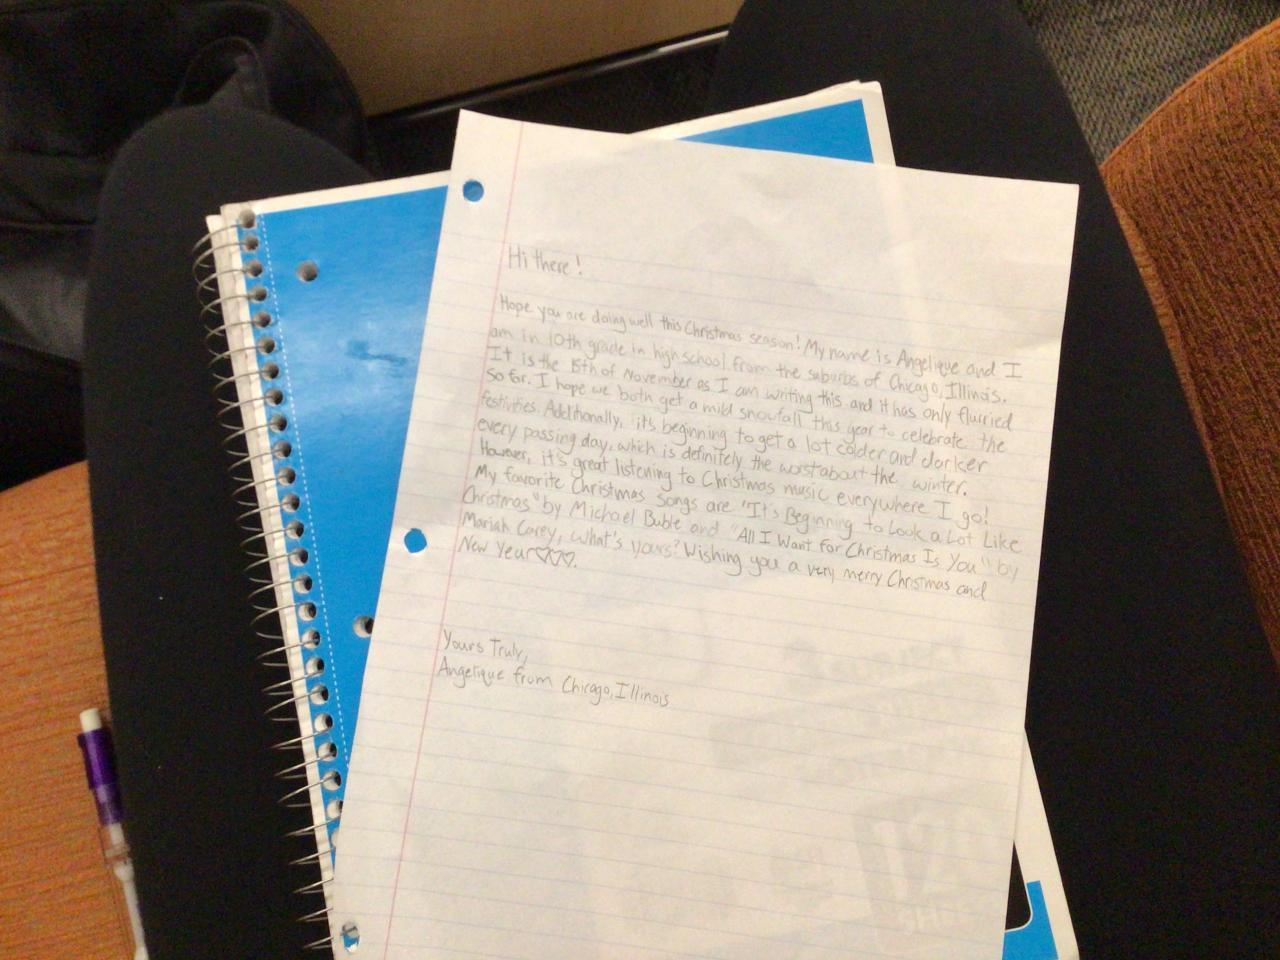 Hi there!
Hope you are doing well this Christmas season! My name is Angelique and I
am in 10th grade in high school from the suburbs of Chicago, Illinois.
It is the 15th of November as I am writing this and it has only flurried
so far. I hope we both get a mild snowfall this year to celebrate the
festivities. Additionally, it's beginning to get a lot colder and darker
every passing day, which is definitely the worst about the winter.
However, it's great listening to Christmas music everywhere I go!
My favorite Christmas songs are "It's Beginning to Look a Lot Like
Christmas" by Michael Buble and "All I Want for Christmas Is You" by
Mariah Carey, what's yours? Wishing you a very merry Christmas and
New Year♡♡♡.
Yours Truly,
Angelique from Chicago, Illinois